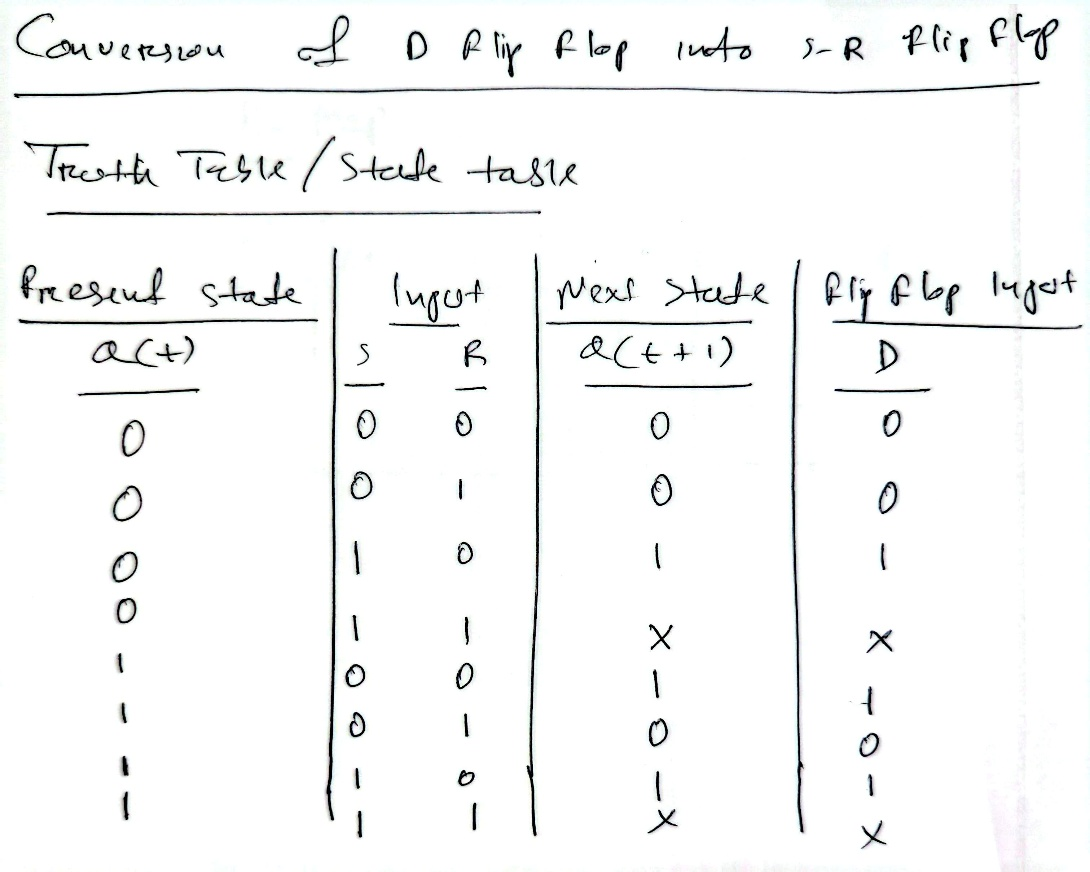 Conversion of D flip flop into S-R flip flop
Truth Table / State table
Present state Input Next state flip flop Input
Q(t) S R Q(t+1) D
0 0 0 0 0
0 0 1 0 0
0 1 0 1 1
0 1 1 X X
1 0 0 1 1
1 0 1 0 0
1 1 0 1 1
1 1 1 X X